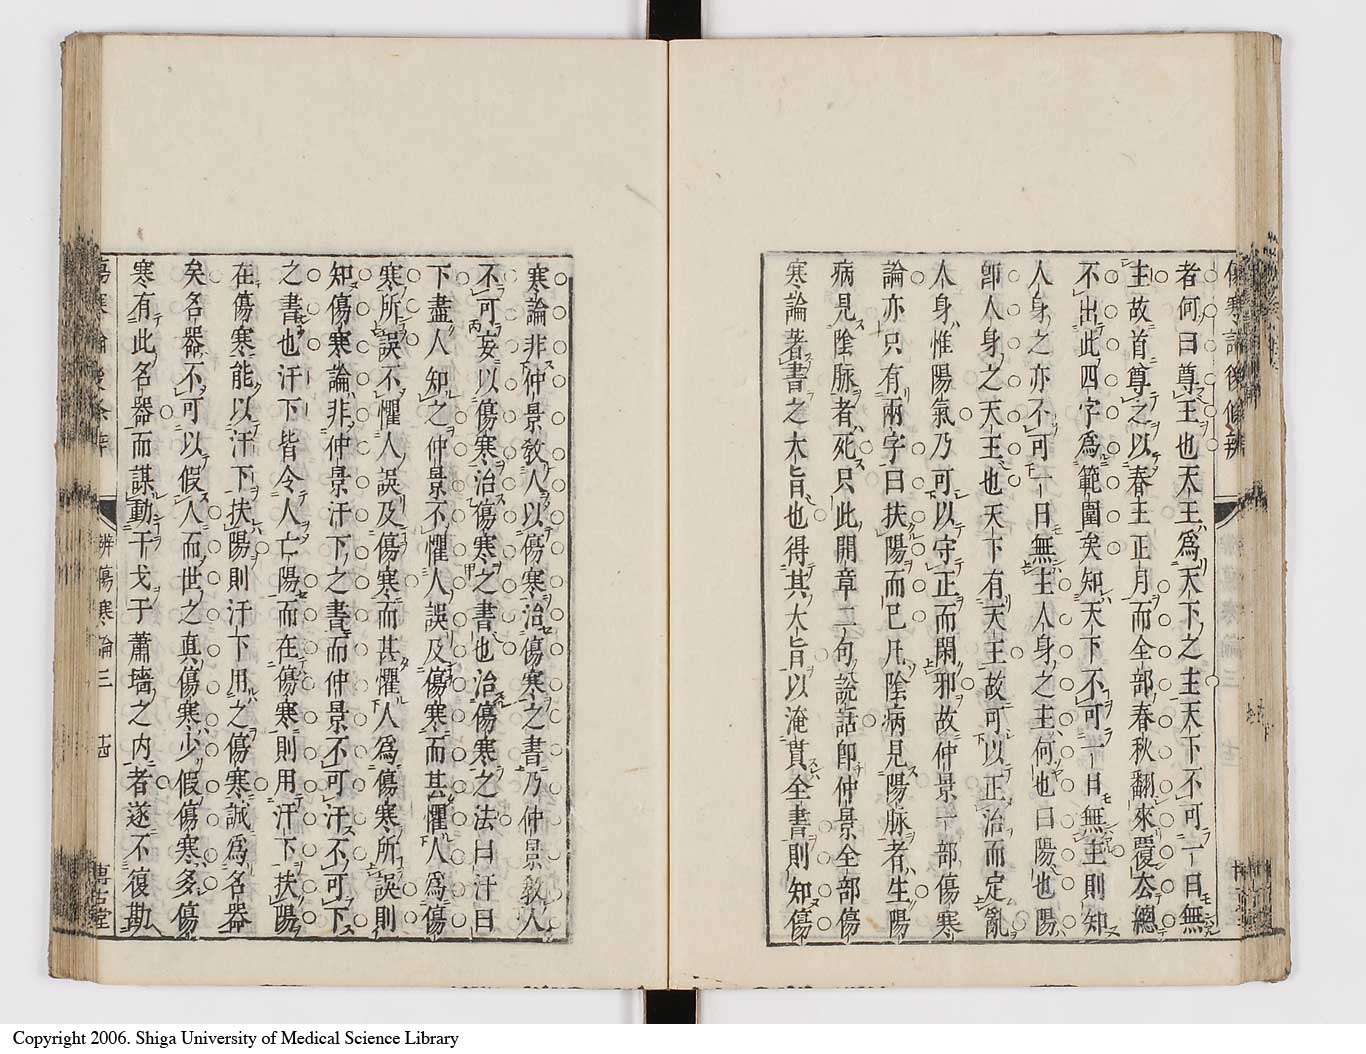 傷寒論後條辨
者何曰尊王也天王爲天下之主天下不可一日無
主故首尊之以春王正月而全部春秋翻來覆去總
不出此四字爲範圍矣知天下不可一日無主則知
人身之亦不可一日無主人身之主何也曰陽也陽
卽人身之天王也天下有天王故可以正治而定亂
人身惟陽氣乃可以守正而閑邪故仲景一部傷寒
論亦只有兩字曰扶陽而已凡陰病見陽脉者生陽
病見陰脉者死只此開章二句說話卽仲景全部傷
寒論著書之大旨也得其大旨以淹貫全書則知傷
寒論非仲景敎人以傷寒治傷寒之書乃仲景敎人
不可妄以傷寒治傷寒之書也治傷寒之法曰汗曰
下盡人知之仲景不懼人誤及傷寒而其懼人爲傷
寒所誤不懼人誤及傷寒而其懼人爲傷寒所誤則
知傷寒論非仲景汗下之書而仲景不可汗不可下
之書也汗下皆令人亡陽而在傷寒則用汗下扶陽
在傷寒能以汗下扶陽則汗下用之傷寒誠爲名器
矣名器不可以假人而世之眞傷寒少假傷寒多傷
寒有此名器而謀動干戈于蕭墻之內者遂不復勘
傷寒論後條辨 辨傷寒論三 十四 博古堂